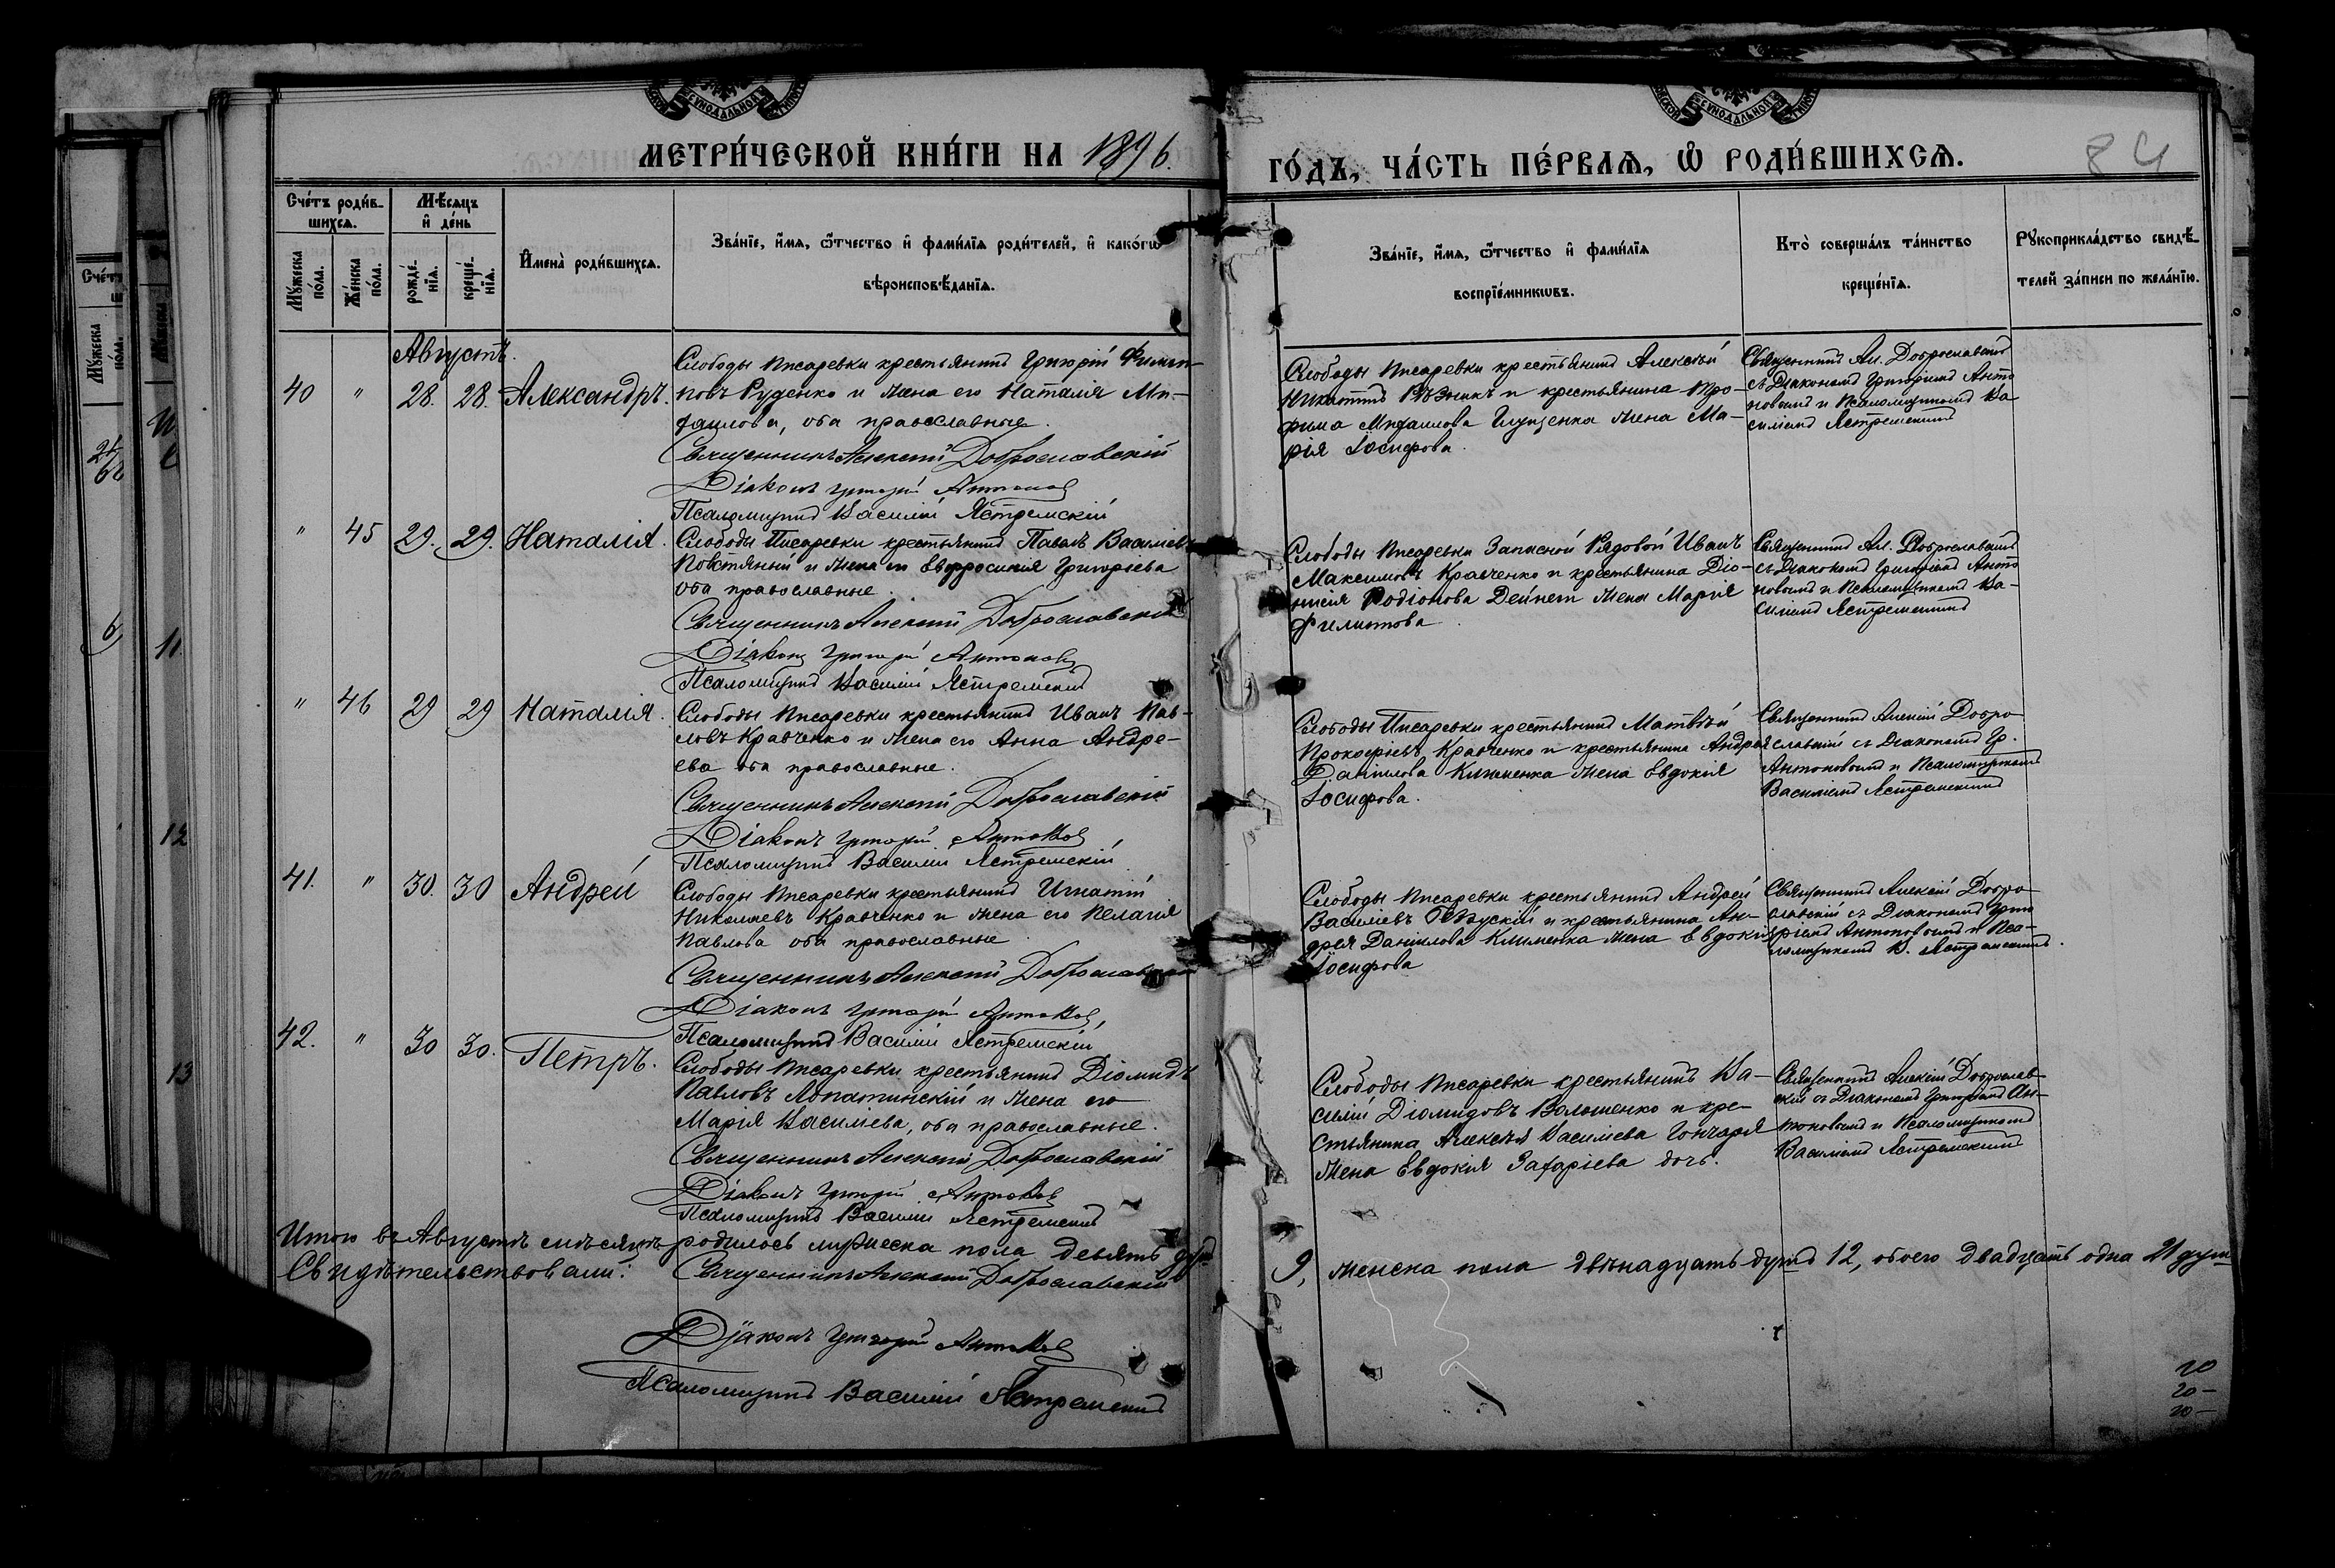 МЕТРИ́ЧЕСКОЙ КНИ́ГИ НА 1896.
ГО́ДЪ, ЧА́СТЬ ПЕ́РВАЯ, Ѽ РОДИ́ВШИХСЯ.
84
Сче́тъ роди́в-
шихся.
Мѣ́сяцъ
и҆ де́нь
Му́жеска по́ла.
Же́нска по́ла.
рожде́-нїя.
креще́-нїя.
И҆мена̀ роди́вшихся.
Зва́нїе, и҆́мя, ѻ҆́тчество и҆ фами́лїя роди́телей, и҆ како́гѡ
вѣроисповѣ́данїя.
Зва́нїе, и҆́мя, ѻ҆́тчество и҆ фами́лїя
воспрїе́мникѡвъ.
Кто̀ соверша́лъ та́инство
креще́нїя.
Рꙋкоприкла́дство свидѣ́-
телей за́писи по жела́нїю.
Августъ.
40 " 28. 28. Александръ.
Слободы Писаревки крестьянинъ Григорій Филип-
повъ Руденко и жена его Наталія Ми-
хаилова, оба православные.
Священникъ Алексій Доброславскій
Діаконъ Григорій Антоновъ
Псаломщикъ Василій Ястремскій
Слободы Писаревки крестьянинъ Алексѣй
Рѣзникъ и крестьянина Тро-
фима Михаилова жена Ма-
рія Іосифова.
Священникъ Ал. Доброславскій
съ Діакономъ Григоріемъ Анто
новымъ и Псаломщикомъ Ва
силіемъ Ястремскимъ
" 45 29. 29. Наталія.
Слободы Писаревки крестьянинъ Павелъ Василіевъ
и жена его Евфросинія Григорьева
оба православные.
Священникъ Алексій Доброславскій
Діаконъ Григорій Антоновъ
Псаломщикъ Василій Ястремскій
Слободы Писаревки Запасной Рядовой Иванъ
Максимовъ Кравченко и крестьянина Діо-
нисія Родіонова Дейнеги жена Марія
Филиппова
Священникъ Ал. Доброславскій
съ Діакономъ Григоріемъ Анто
новымъ и Псаломщикомъ Ва-
силіемъ Ястремскимъ
" 46 29 29 Наталія.
Слободы Писаревки крестьянинъ Иванъ Пав-
ловъ Кравченко и жена его Анна Андре-
ева оба православные.
Священникъ Алексій Доброславскій
Діаконъ Григорій Антоновъ
Псаломщикъ Василій Ястремскій
Слободы Писаревки крестьянинъ Матвѣй
Прокофьевъ Кравченко и крестьянина Андрея
Даніилова Клименка жена Евдокія
Іосифова.
Священникъ Алексій Добро
славскій съ Діакономъ Гр.
Антоновымъ и Псаломщикомъ
Василіемъ Ястремскимъ
41. " 30. 30 Андрей
Слободы Писаревки крестьянинъ Игнатій
Николаевъ Кравченко и жена его Пелагія
Павлова оба православные
Священникъ Алексій Доброславскій
Діаконъ Григорій Антоновъ,
Псаломщикъ Василій Ястремскій
Слободы Писаревки крестьянинъ Андрей
Василіевъ и крестьянина Ан-
дрея Даніилова Клименка жена Евдокія
Іосифова
Священникъ Алексій Добро
славскій съ Діакономъ Григо
ріемъ Антоновымъ и Пса-
ломщикомъ В. Ястремскимъ.
42. " 30 30. Петръ.
Слободы Писаревки крестьянинъ Діомидъ
Павловъ Лопатинскій и жена его
Марія Василіева, оба православные.
Священникъ Алексій Доброславскій
Діаконъ Григорій Антоновъ
Псаломщикъ Василій Ястремскій
Слободы Писаревки крестьянинъ Ва-
силій Діомидовъ Волошенко и кре-
стьянина Алексѣя Василіева Гончаря
жена Евдокія Захаріева дочь.
Священникъ Алексій Доброслав-
скій съ Діакономъ Григоріемъ Ан-
тоновымъ и Псаломщикомъ
Василіемъ Ястремскимъ
Итого въ Августѣ мѣсяцѣ родилось мужеска пола девять душъ
9, женска пола двѣнадцать душъ 12, обоего двадцать одна 21 душа
Свидѣтельствовали: Священникъ Алексій Доброславскій
Діаконъ Григорій Антоновъ
Псаломщикъ Василій Ястремскій
20
20 -
20 -